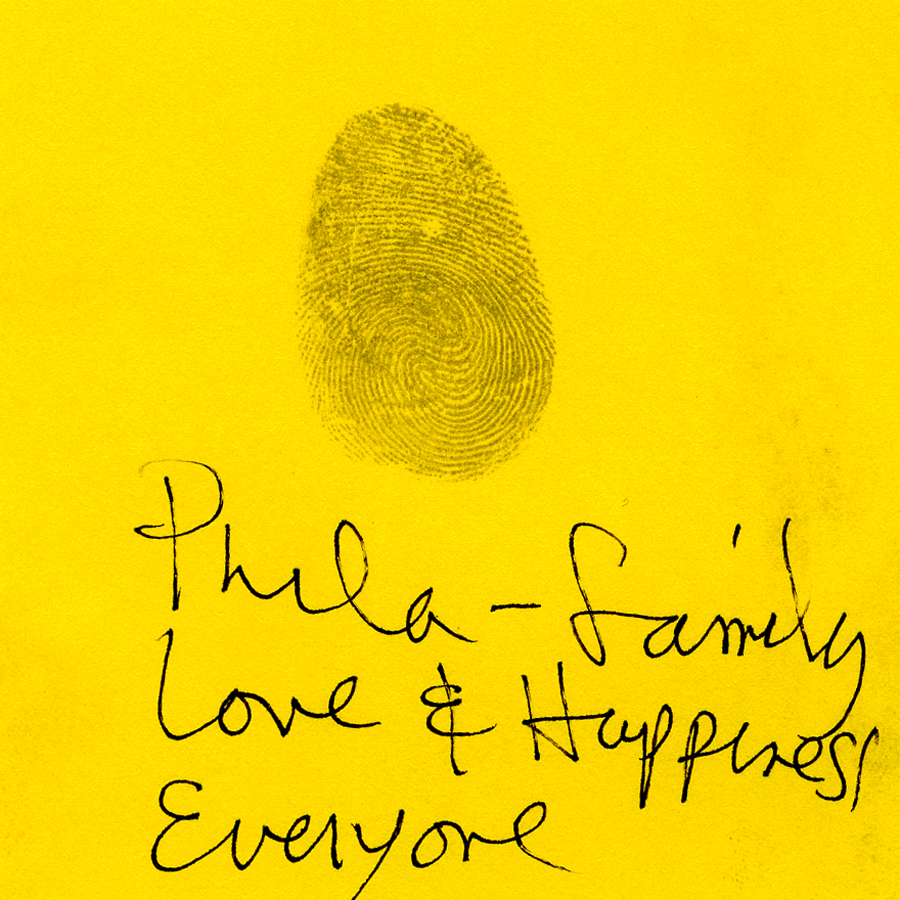 Phila - family
Love & Happiness
Everyone